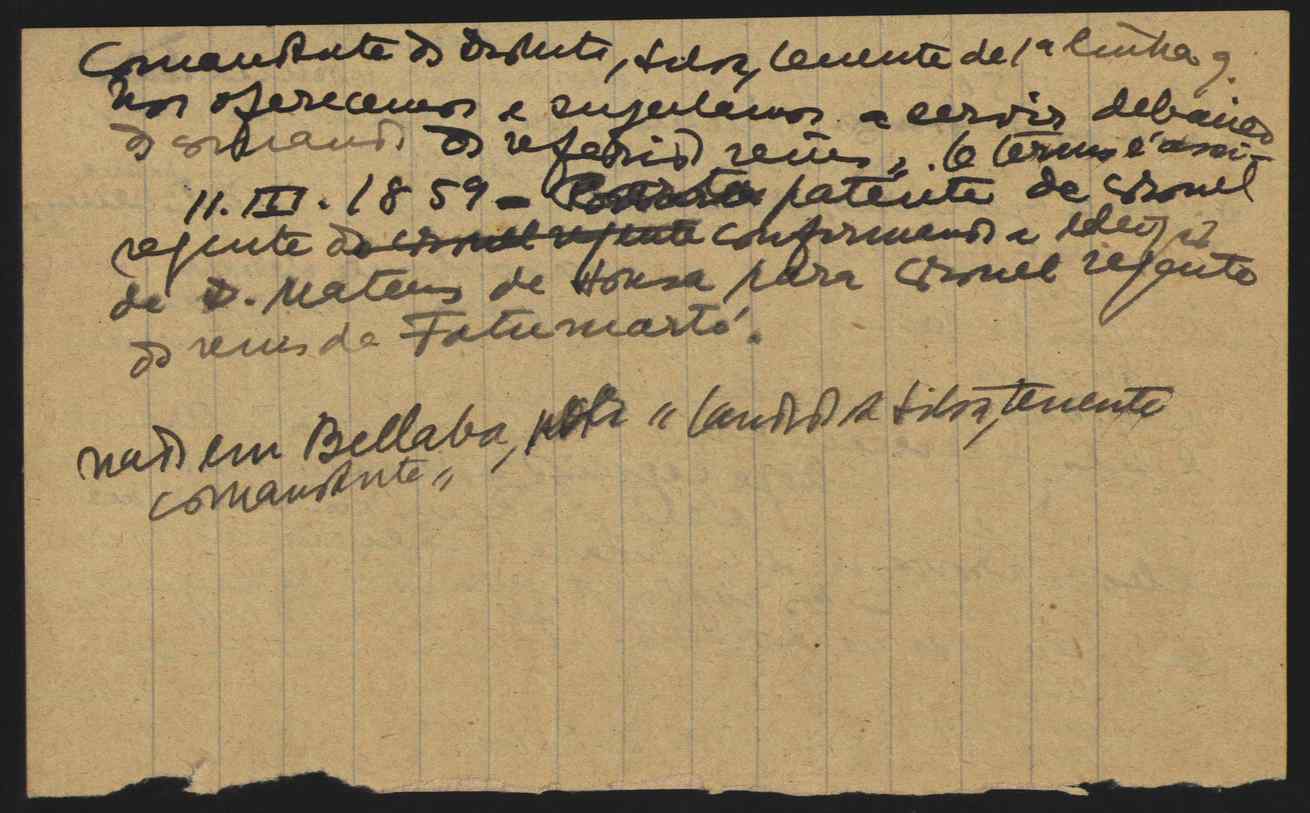 Comandante do distrito, Silva, tenente de 1ª linha q.
nos oferecemos e sujeitamos a servir debaixo
do comando do referido reino". O termo é assi-
11.III.1859 - patente de coronel
regente do coronel regente confirmando a eleição
de D. Mateus de Sousa para coronel regente
do reino de Fatumartó.
nado em Bellaba, "Candido da Silva, tenente
comandante"